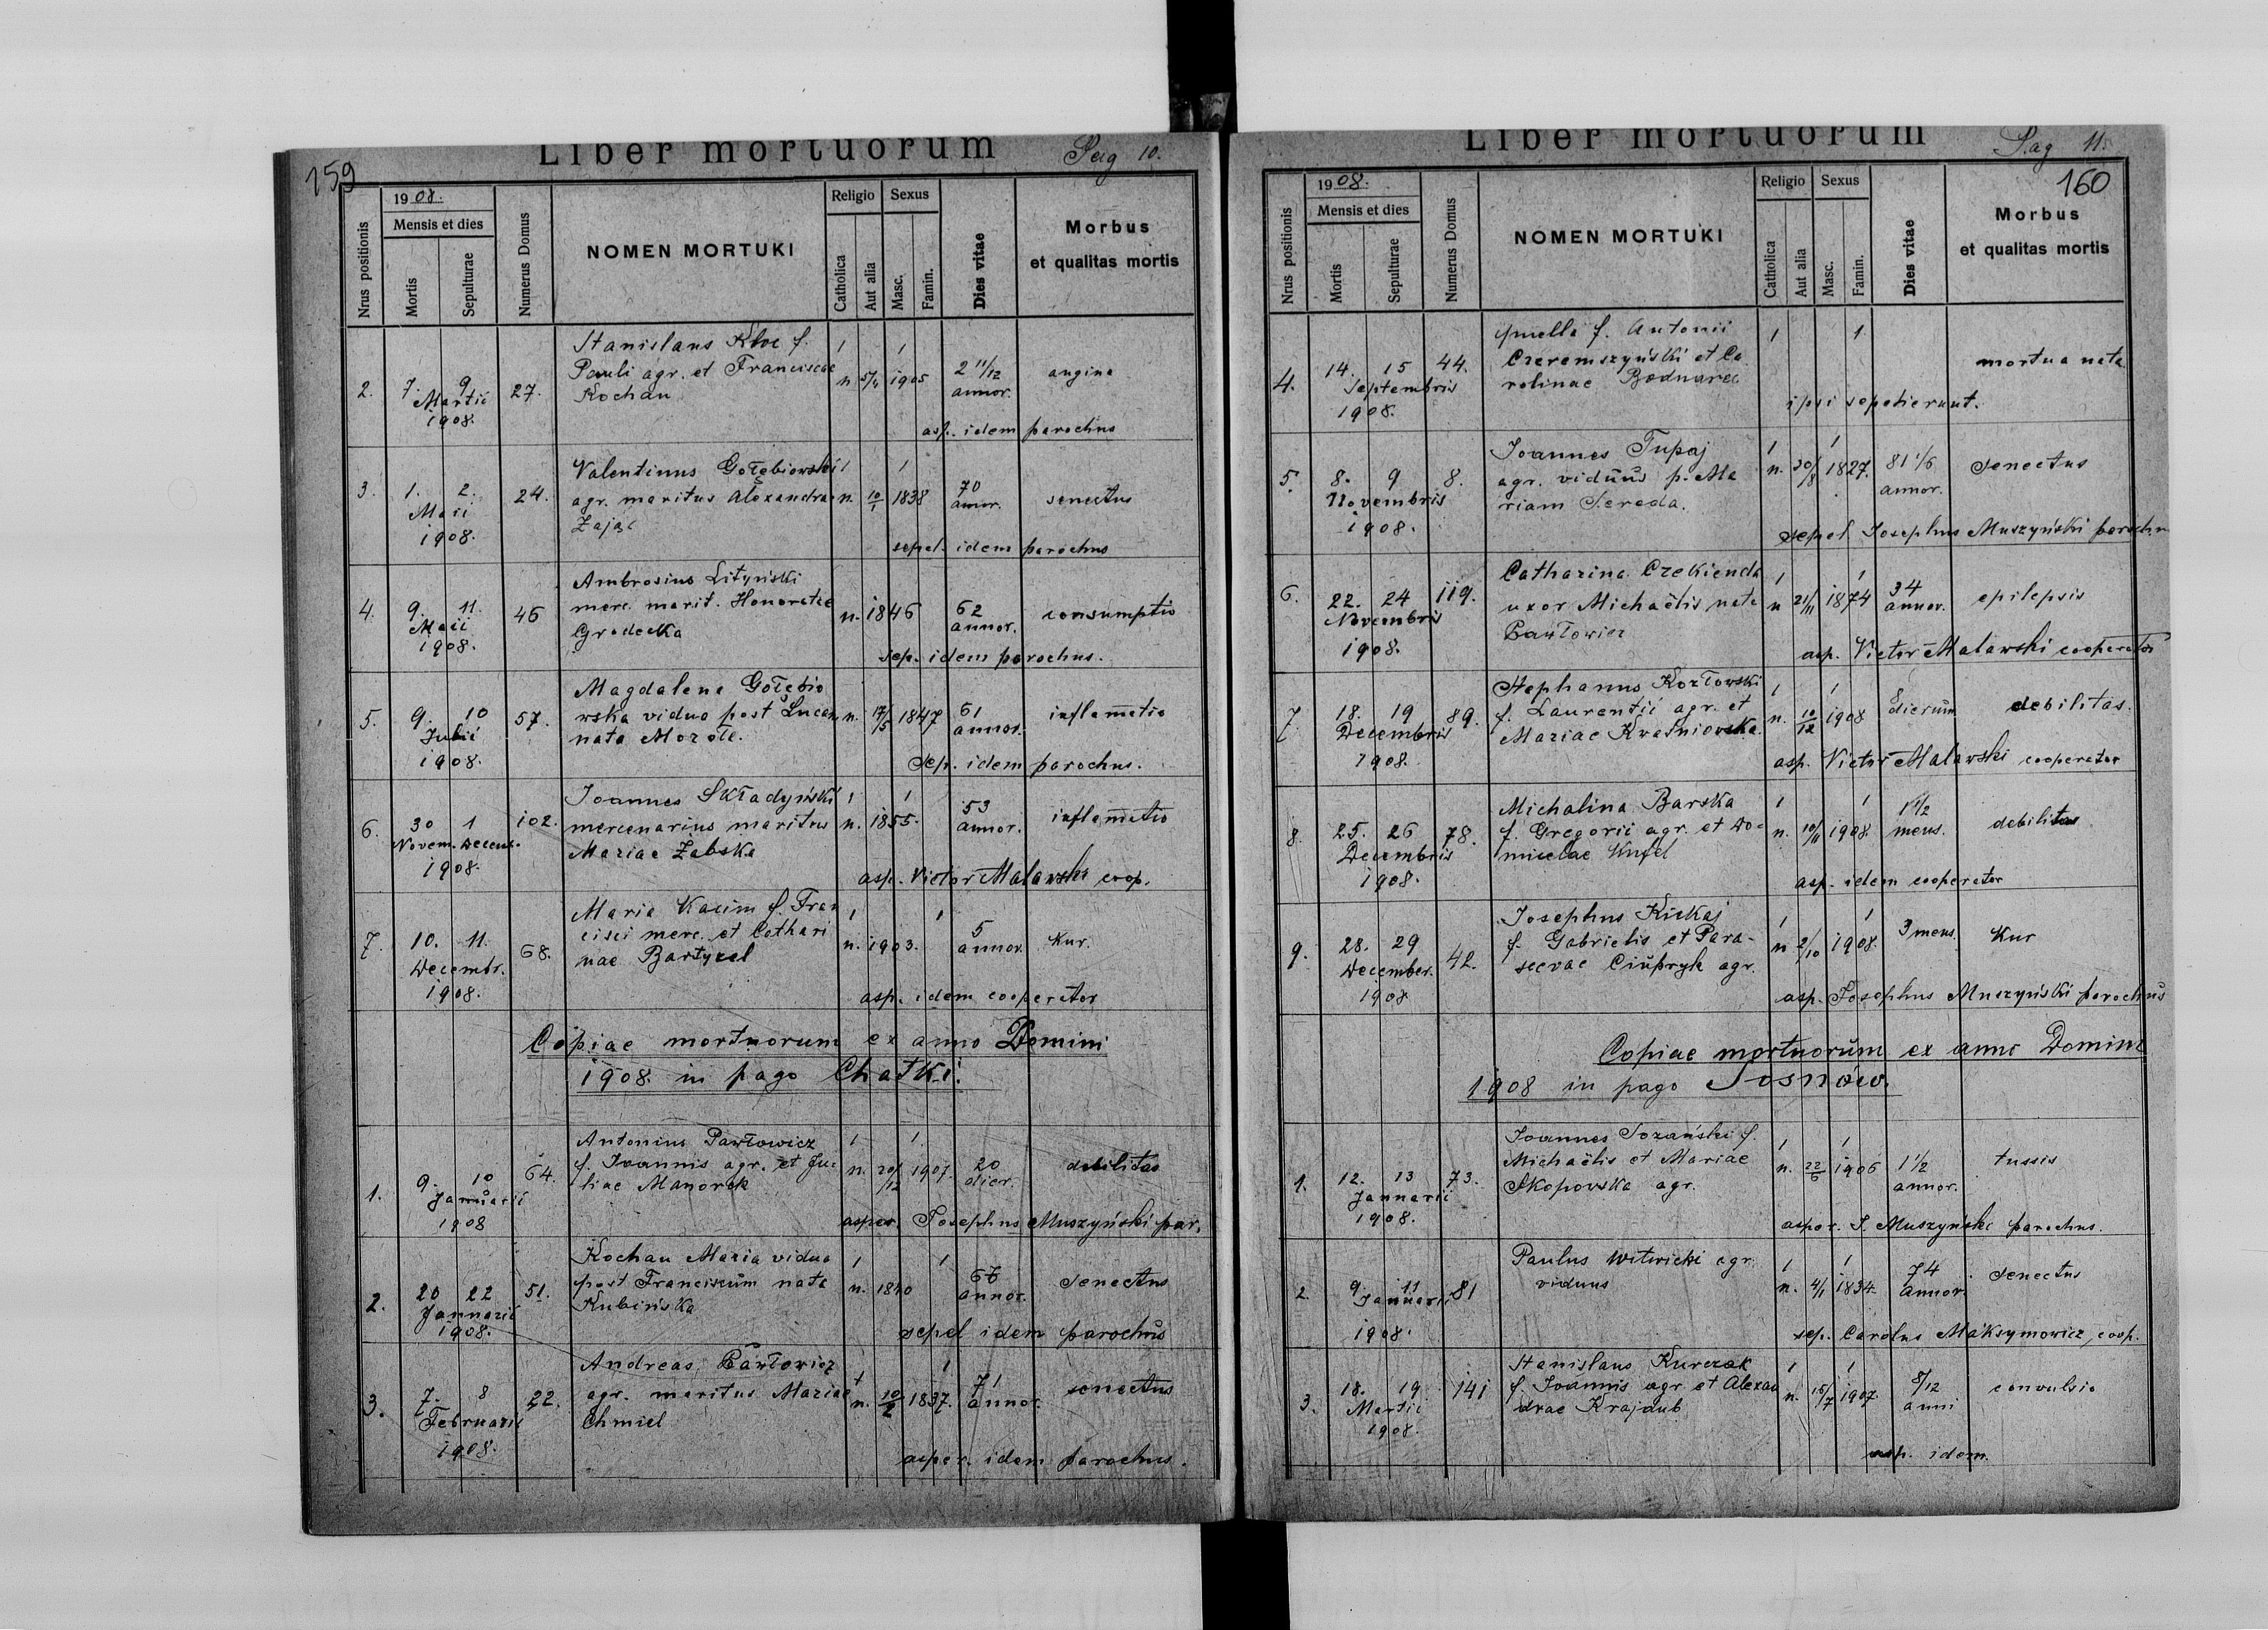 159
Liber mortuorum Pag 10.
1908.
Mensis et dies
Nrus positionis
Mortis
Sepulturae
Numerus Domus
NOMEN MORTUKI
Religio
Catholica
Aut alia
Sexus
Masc.
Famin.
Dies vitae
Morbus
et qualitas mortis
Stanislaus Kloc f. 1 1
2. 7. 9 27. Pauli agr. et Franciscae n 5/4 1905 2 11/12 angina
Martii Kochan annor.
1908.
asp. idem parochus
Valentinus Gołębiowski 1 1
3. 1. 2. 24. agr. maritus Alexandrae n. 10/1 1838 70 senectus
Maii Zając annor.
1908.
sepel. idem parochus
Ambrosius Lityński
4. 9. 11. 46 merc. marit. Honoratae n. 1846 62 consumptio
Maii Grodecka annor.
1908.
sep. idem parochus.
Magdalena Gołębio
5. 9. 10 57. wska vidua post Lucam n. 17/5 1847 61 inflamatio
Julii nata annor.
1908.
sep. idem parochus.
Joannes Składyński 1 1
6. 30 1 102. mercenarius maritus n. 1855. 53 inflamatio
Novem. Decem. Mariae Żabska annor.
1908.
asp. Victor Malawski coop.
Maria Kacim f. Fran 1 1
7. 10. 11. 68. cisci merc. et Cathari n. 1903. 5 Kur.
Decembr. nae Bartyzel annor.
1908.
asp. idem cooperator
Copiae mortuorum ex anno Domini
1908. in pago Chatki.
Antonius Pawłowicz 1 1.
1. 9. 10 64. f. Joannis agr. et Ju- n. 20/12 1907. 20 debilitas
Januarii liae Manorek dier.
1908
asper. Josephus Muszyński par.
Kochan Maria vidua 1 1
2. 20 22 51. post Franciscum nata n. 1840 senectus
Januarii Kubińska annor.
1908.
sepel idem parochus
Andreas Pawłowicz 1 1
3. 7. 8 22. agr. maritus Mariae n. 10/2 1837. 71 senectus
Februarii Chmiel annor.
1908.
asper. idem parochus.
Liber mortuorum Pag 11.
160
1908.
Mensis et dies
Nrus positionis
Mortis
Sepulturae
Numerus Domus
NOMEN MORTUKI
Religio
Catholica
Aut alia
Sexus
Masc.
Famin.
Dies vitae
Morbus
et qualitas mortis
puella f. Antonii 1 1.
4. 14. 15 44. Czeremszyński et Ca mortua nata
Septembris rolinae Bodnarec
1908.
ipsi sepelierunt.
Joannes Tupaj 1 1
5. 8. 9 8. agr. viduus p. Ma n. 30/8 1827. 81 1/6 senectus
Novembris riam Sereda. annor.
1908.
sepel. Josephus Muszyński paroch
Catharina Czekienda 1 1
6. 22. 24 119. uxor Michaëlis nata n 21/11 1874 34 epilepsis
Novembris Pawłowicz annor.
1908.
asp. Victor Malawski cooperator
Stephanus Kozłowski 1 1
7. 18. 19 89. f. Laurentii agr. et n. 10/12 1908 8 dierum debilitas.
Decembris Mariae Kwaśniowska.
1908.
asp. Victor Malawski cooperator
Michalina Barska 1 1
8. 25. 26 78. f. Gregorii agr. et Do- n. 10/11 1908. 1 1/2 debilitas
Decembris micelae Kufel mens.
1908.
asp. idem cooperator
Josephus Kickaj 1 1
9. 28. 29 42. f. Gabrielis et Para- n 2/10 1908. 3 mens. Kur
December. scevae Ciupryk agr.
1908
asp. Josephus Muszyński parochus
Copiae mortuorum ex anno Domini
1908 in pago Sosnów.
Joannes Sozański f. 1 1
1. 12. 13 73. Michaëlis et Mariae n. 22/6 1906 1 1/2 tussis
Januarii Skopowska agr. annor.
1908.
asper. J. Muszyński parochus.
Paulus Witwicki agr. 1 1
2. 9 11 81 viduus n. 4/1 1834. 74 senectus
Januarii annor.
1908.
sep. Carolus Maksymowicz, coop.
Stanislaus Kurczak 1 1
3. 18. 19 141 f. Joannis agr. et Alexan n. 15/7 1907. 8/12 convulsio
Martii drae Krajdub anni
1908.
asp. idem.